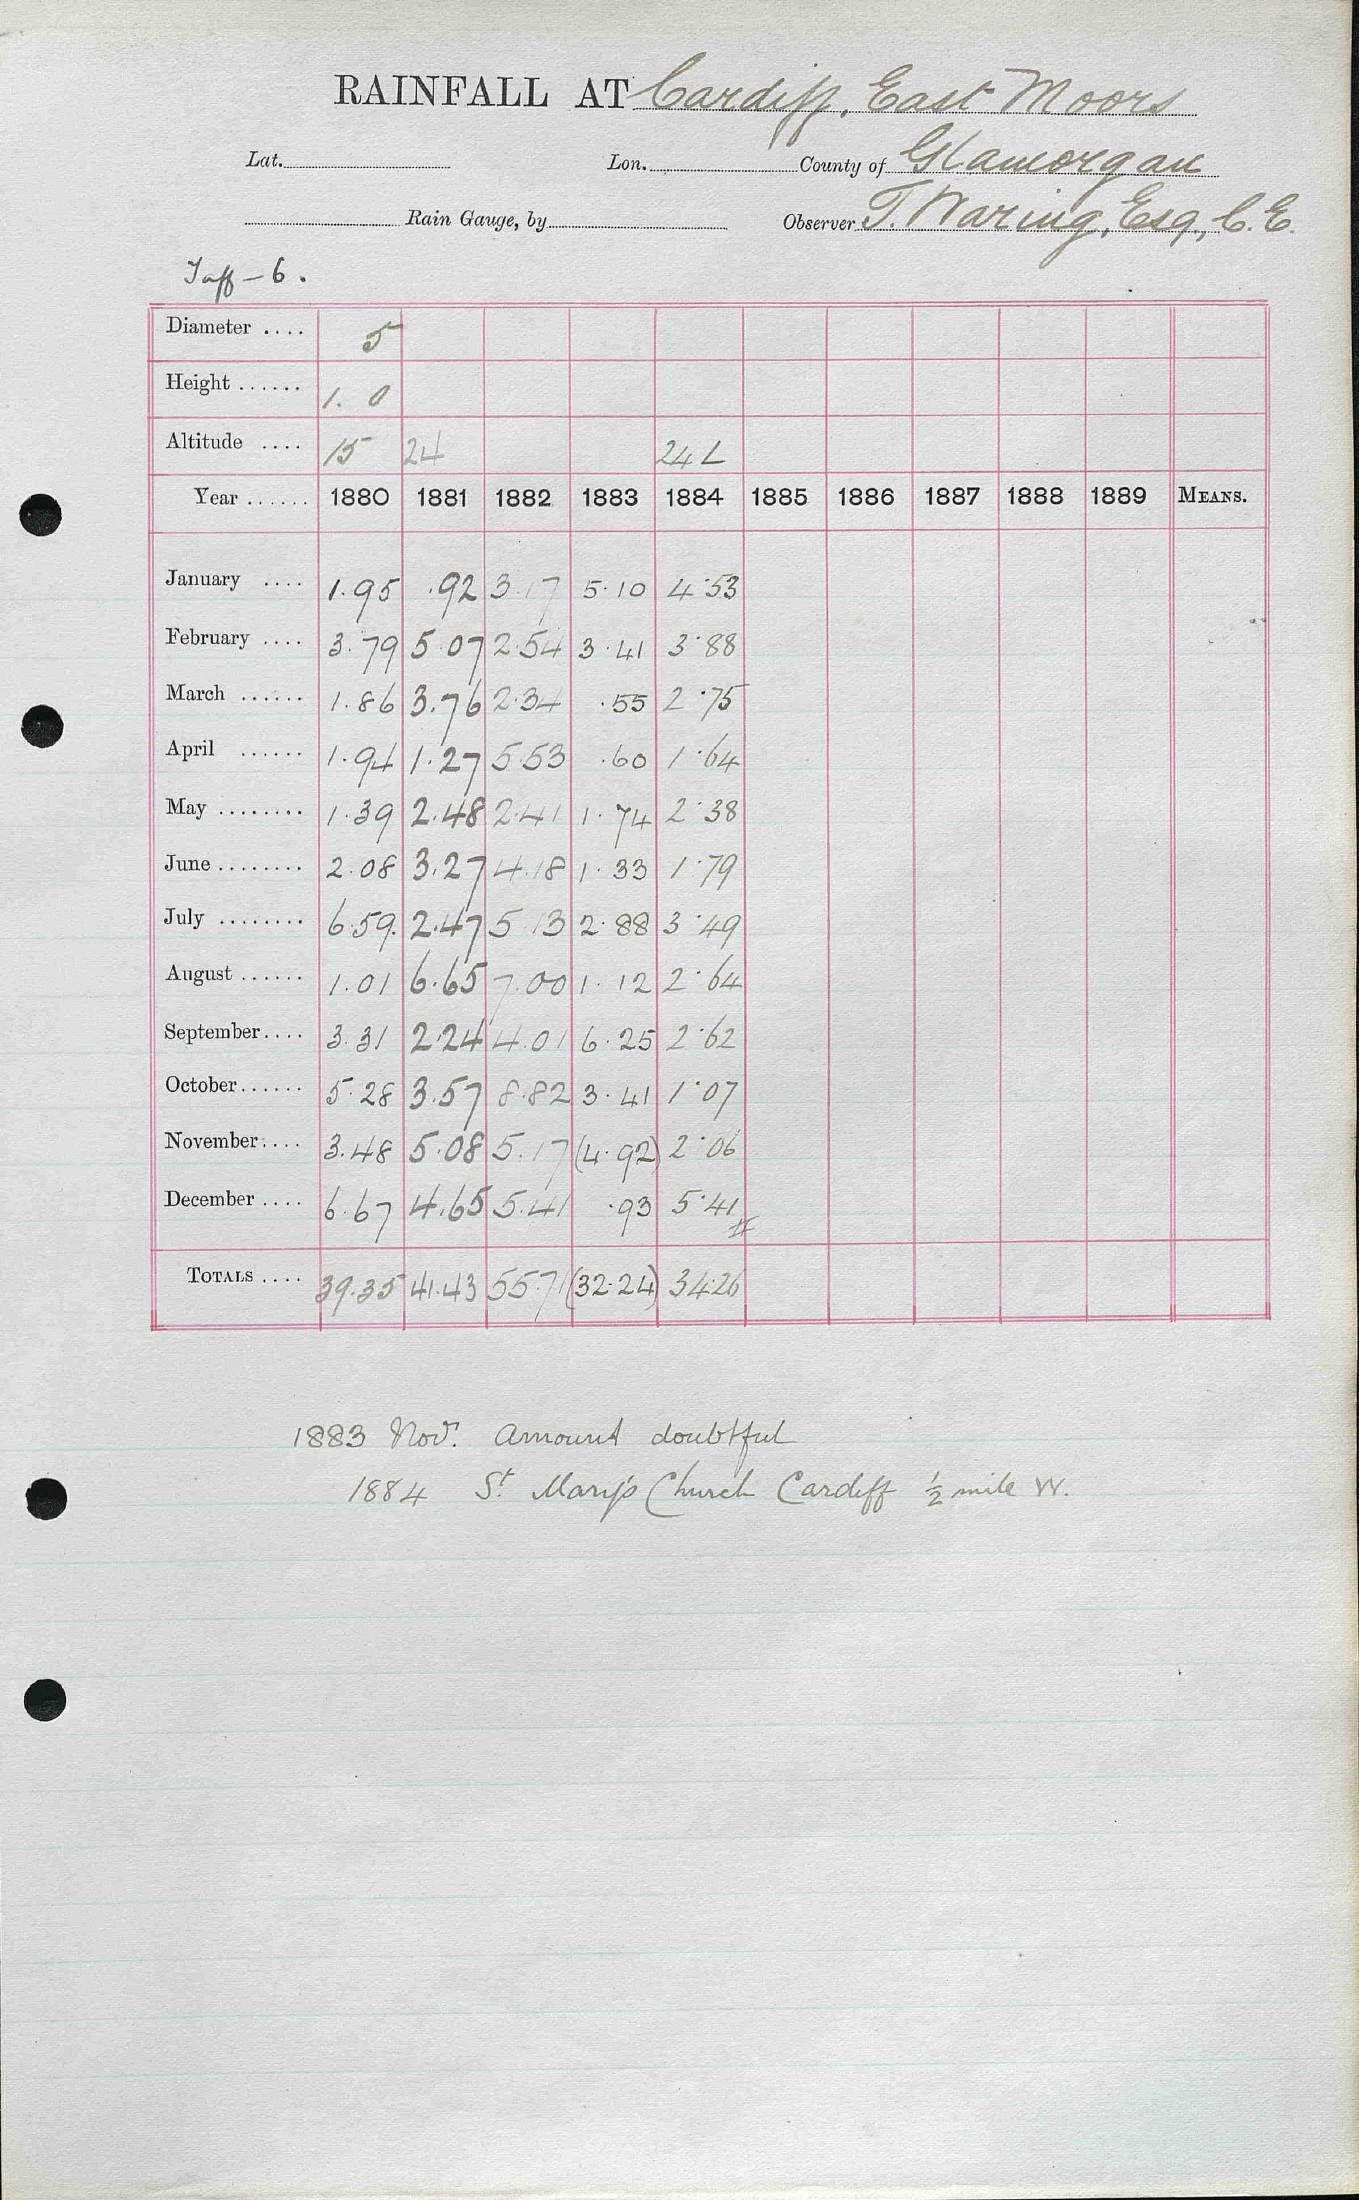 RAINFALL AT Cardiff, East Moors
Lat. Lon. County of Glamorgan
Rain Gauge, by Observer T. Waring, Esq., C.E.
Taff - 6.
Diameter .... 5
Height ...... 1. 0
Altitude .... 15 24 24 L
Year ...... 1880 1881 1882 1883 1884 1885 1886 1887 1888 1889 MEANS.
January .... 1.95 .92 3.17 5.10 4.53
February .... 3.79 5.07 2.54 3.41 3.88
March ...... 1.86 3.76 2.34 .55 2.75
April ...... 1.94 1.27 5.53 .60 1.64
May ........ 1.39 2.48 2.41 1.74 2.38
June ........ 2.08 3.27 4.18 1.33 1.79
July ........ 6.59 2.47 5.13 2.88 3.49
August ...... 1.01 6.65 7.00 1.12 2.64
September.... 3.31 2.24 4.01 6.25 2.62
October...... 5.28 3.57 8.82 3.41 1.07
November.... 3.48 5.08 5.17 (4.92) 2.06
December .... 6.67 4.65 5.41 .93 5.41
TOTALS .... 39.35 41.43 55.71 (32.24) 34.26
1883 Nov. amount doubtful
1884 St. Mary's Church Cardiff ½ mile W.